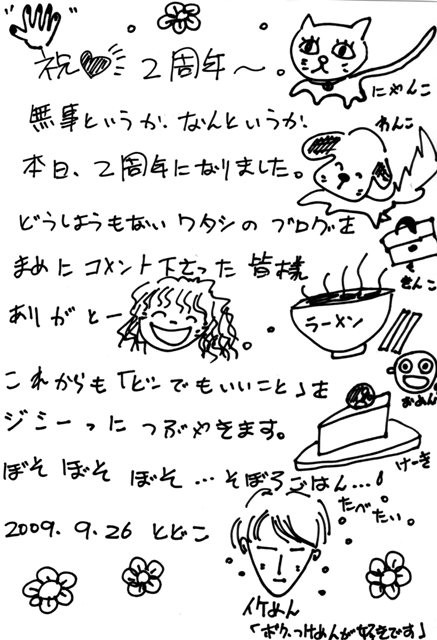 祝♡ 2周年〜。
にゃんこ
無事というか、なんというか、
わんこ
本日、2周年になりました。
どうしようもない ワタシの ブログを
きんこ
まめに コメント下さった 皆様
ありがとー
ラーメン
おめん
これからも「どーでもいいこと」を
ジミーっに つぶやきます。
けーき
ぼそ ぼそ ぼそ…そぼろごはん…!
たべたい
2009.9.26 とどこ
イケめん
「ボク、つけめんが好きです」